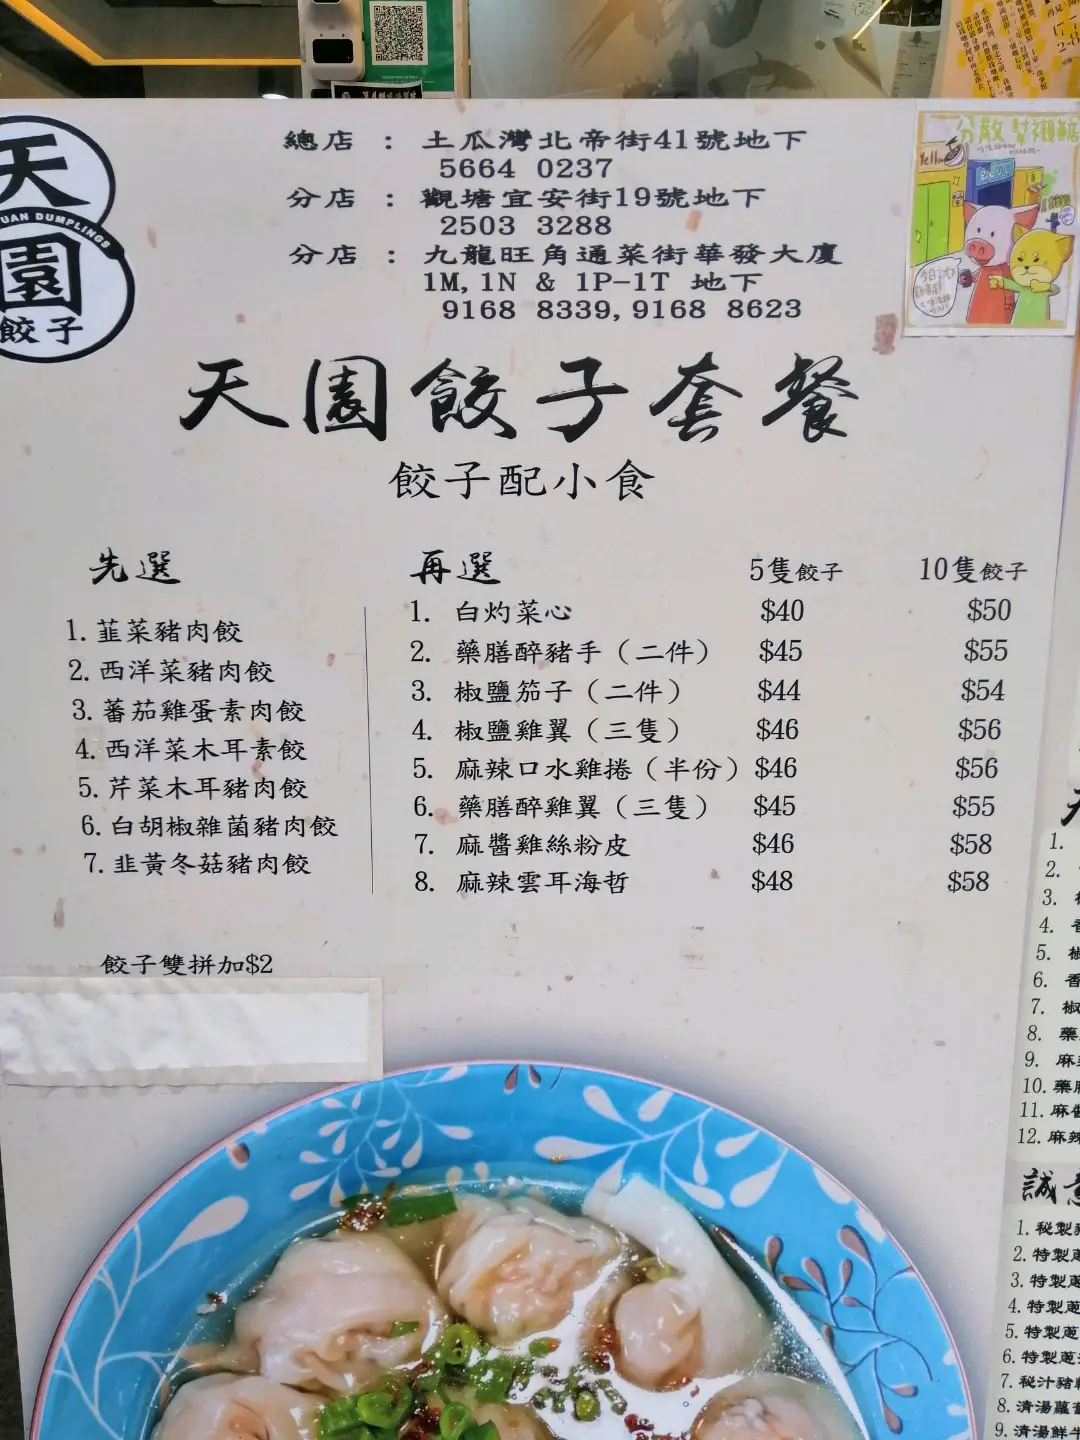 天
UAN DUMPLINGS
園
餃子
總店 : 土瓜灣北帝街41號地下
5664 0237
分店 : 觀塘宜安街19號地下
2503 3288
分店 : 九龍旺角通菜街華發大廈
1M, 1N & 1P-1T 地下
9168 8339, 9168 8623
Yellow
天園餃子套餐
餃子配小食
先選
1. 韮菜豬肉餃
2. 西洋菜豬肉餃
3. 蕃茄雞蛋素肉餃
4. 西洋菜木耳素餃
5. 芹菜木耳豬肉餃
6. 白胡椒雜菌豬肉餃
7. 韭黃冬菇豬肉餃
餃子雙拼加$2
再選 5隻餃子 10隻餃子
1. 白灼菜心 $40 $50
2. 藥膳醉豬手（二件） $45 $55
3. 椒鹽茄子（二件） $44 $54
4. 椒鹽雞翼（三隻） $46 $56
5. 麻辣口水雞捲（半份） $46 $56
6. 藥膳醉雞翼（三隻） $45 $55
7. 麻醬雞絲粉皮 $46 $58
8. 麻辣雲耳海哲 $48 $58
1.
2.
3.
4. 香
5. 椒
6. 香
7. 椒
8. 藥
9. 麻
10. 藥
11. 麻
12. 麻辣
誠意
1. 秘製
2. 特製
3. 特製
4. 特製
5. 特製
6. 特製
7. 秘汁豬
8. 清湯蘿
9. 清湯鮮牛